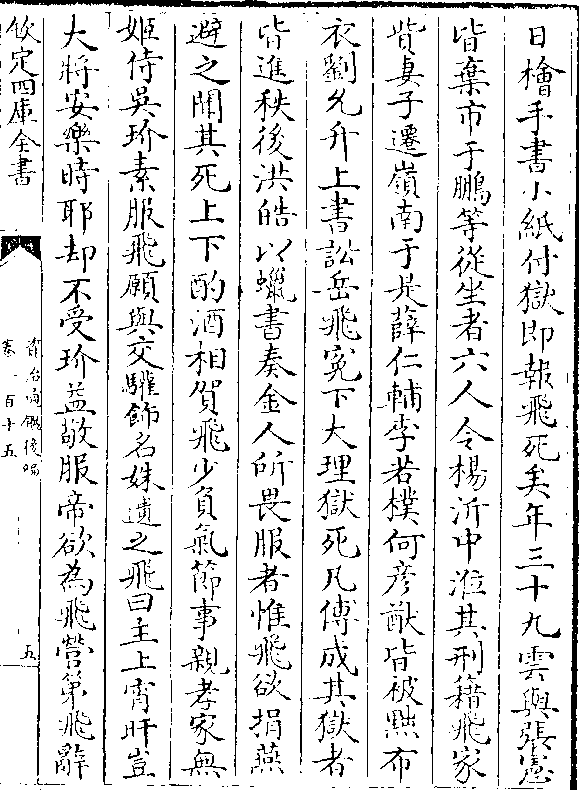 日檜手書小紙付獄即報飛死矣年三十九雲與張憲
皆棄市于鵬等從坐者六人令楊沂中涖其刑籍飛家
貲妻子遷嶺南于是薛仁輔李若樸何彥猷皆被黜布
衣劉允升上書訟岳飛寃下大理獄死凡傅成其獄者
皆進秩後洪皓以蠟書奏金人所畏服者惟飛欲捐燕
避之聞其死上下酌酒相賀飛少負氣節事親孝家無
姬侍吳玠素服飛願與交驩飾名姝遺之飛曰主上宵旰豈
大將安樂時耶却不受玠益敬服帝欲為飛營第飛辭
欽定四庫全書
資治通鑑後編
卷一百十五
五